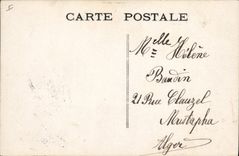 CARTE POSTALE
Melle Hélène
Baudin
21 Rue Clauzel
Mustapha
Alger